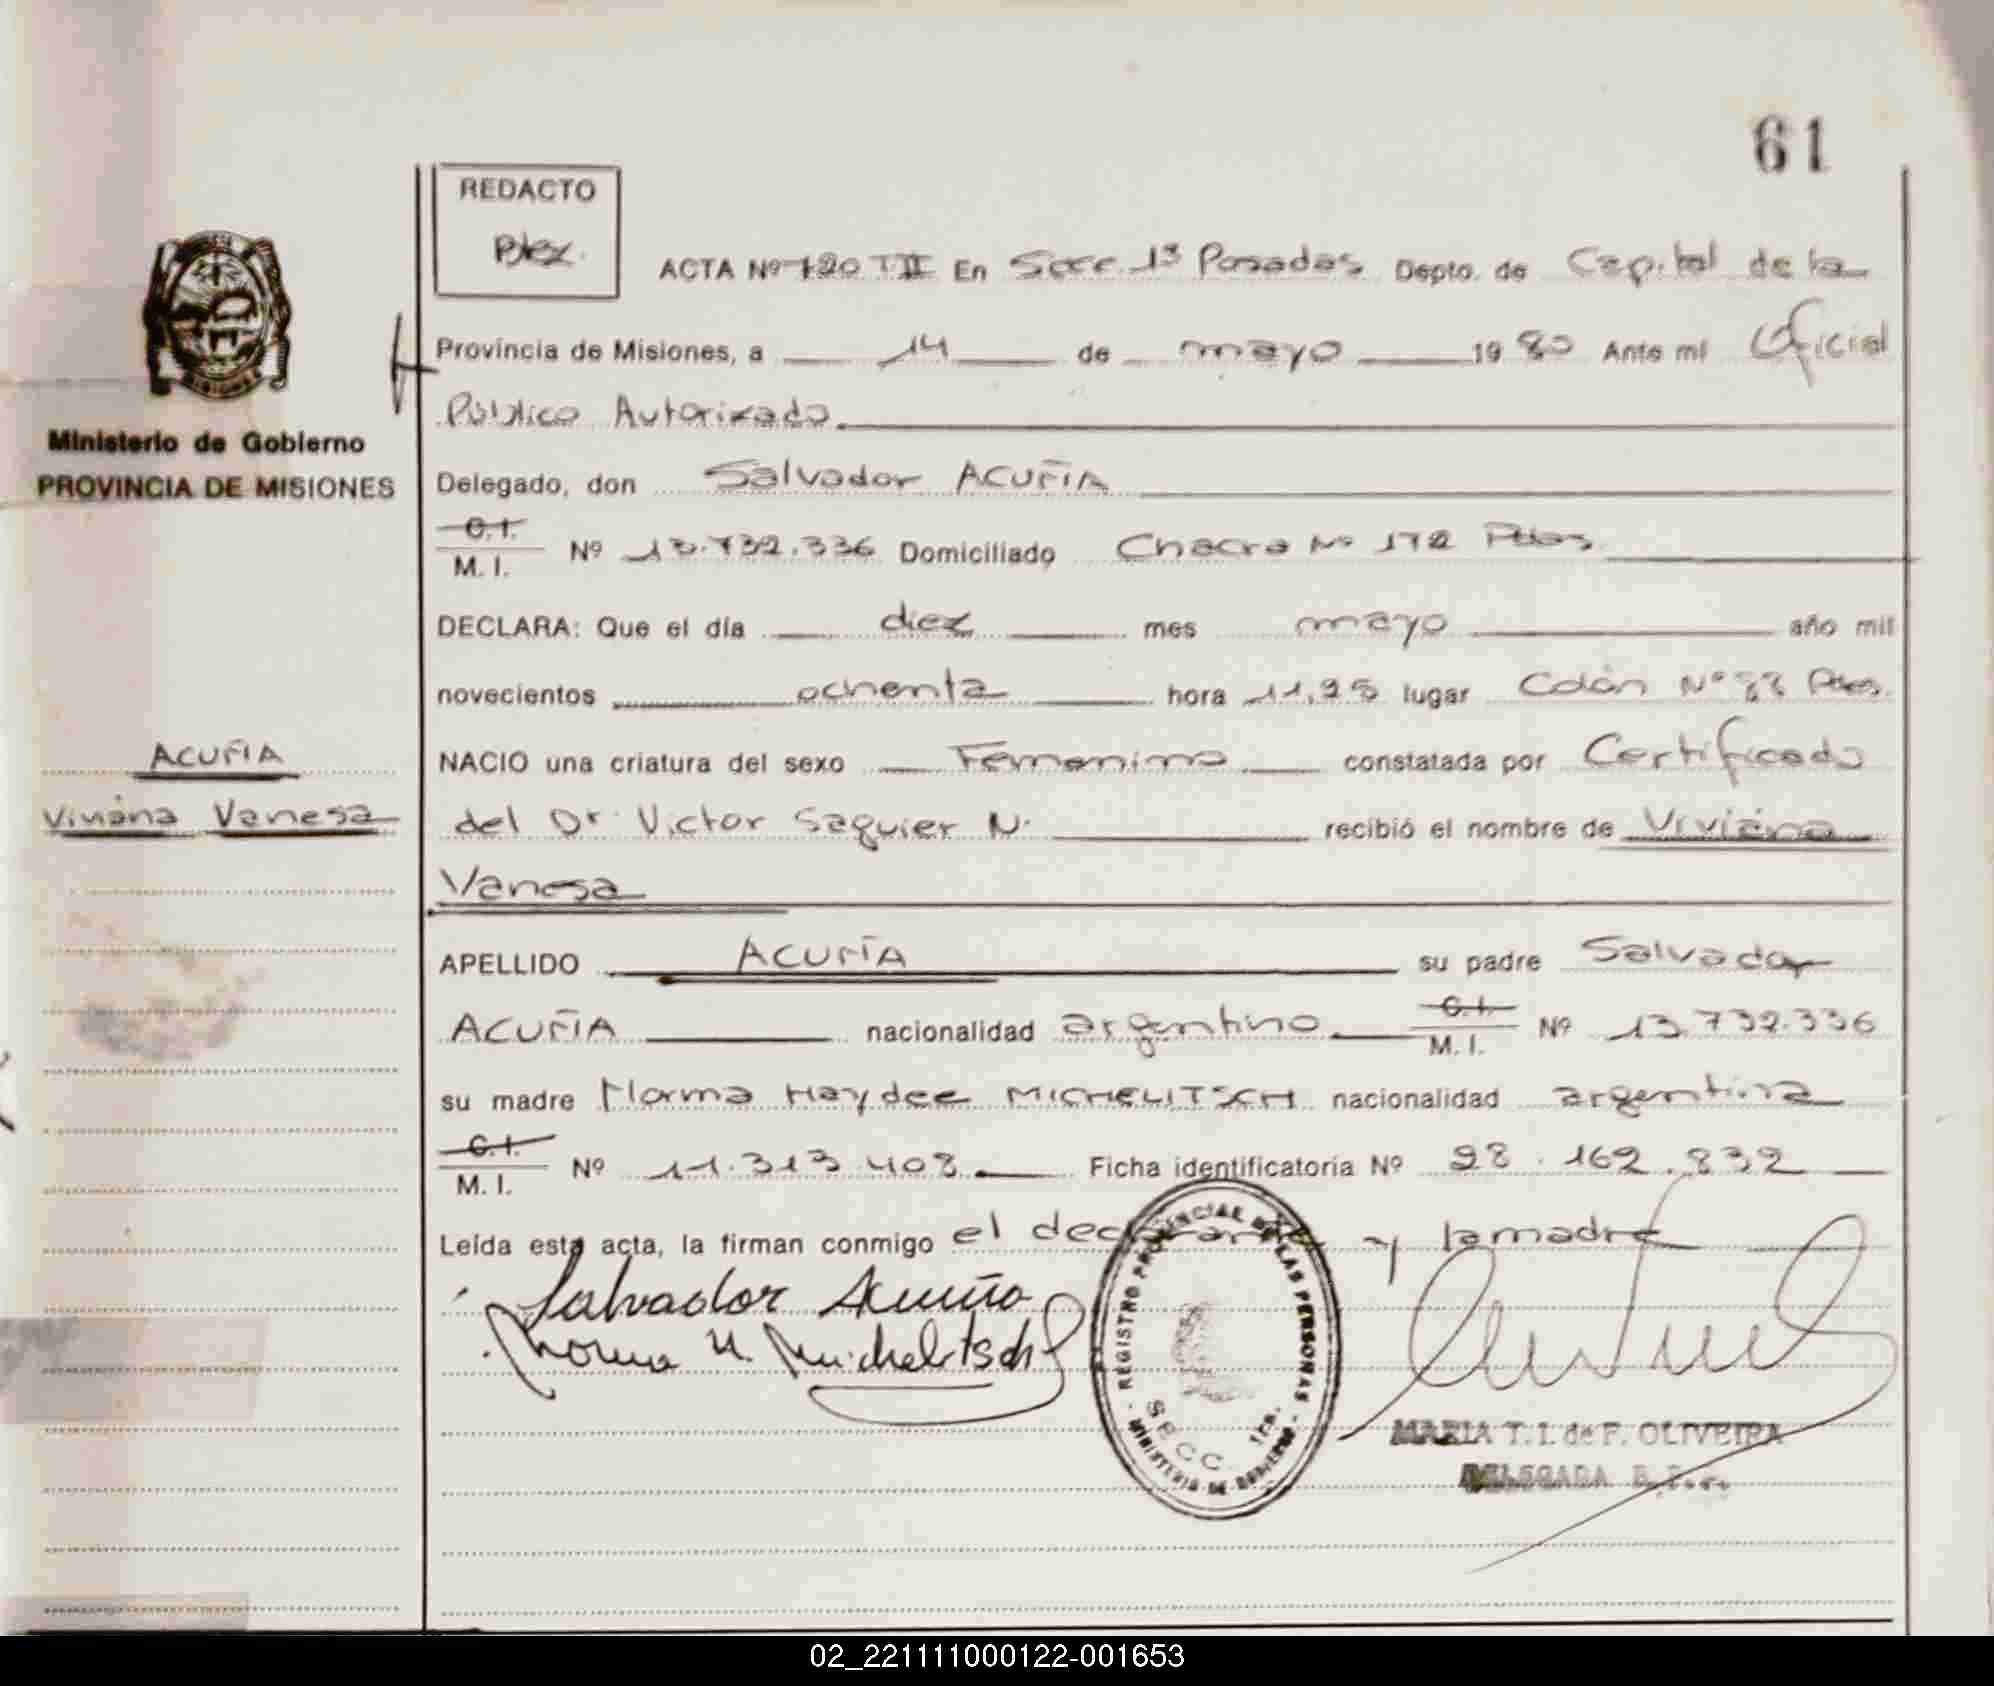 61
REDACTO
ACTA Nº 120 TII En Secc. 1ª Posadas Depto. de Capital de la
Provincia de Misiones, a 14 de mayo 1980 Ante mi Oficial
Público Autorizado
Ministerio de Gobierno
PROVINCIA DE MISIONES
Delegado, don Salvador ACUÑA
C.I.
M. I. Nº 13.732.336 Domiciliado Chacra Nº 172 Pdas
DECLARA: Que el día diez mes mayo año mil
novecientos ochenta hora 11,25 lugar Colón Nº 88 Pdas.
ACUÑA
NACIO una criatura del sexo Femenino constatada por Certificado
Viviana Vanesa
del Dr. Victor Saguier N. recibió el nombre de Viviana
Vanesa
APELLIDO ACUÑA su padre Salvador
ACUÑA nacionalidad argentino C.I.
M. I. Nº 13.732.336
su madre Norma Haydee MICHELITSCH nacionalidad argentina
C.I.
M. I. Nº 11.313.408 Ficha identificatoria Nº 28.162.832
Leída esta acta, la firman conmigo el declarante y la madre
Salvador Acuña
Norma H. Michelitsch
REGISTRO PROVINCIAL DE LAS PERSONAS
SECC. 1ra.
MINISTERIO DE GOBIERNO
MARIA T. I. de F. OLIVEIRA
DELEGADA
02_221111000122-001653